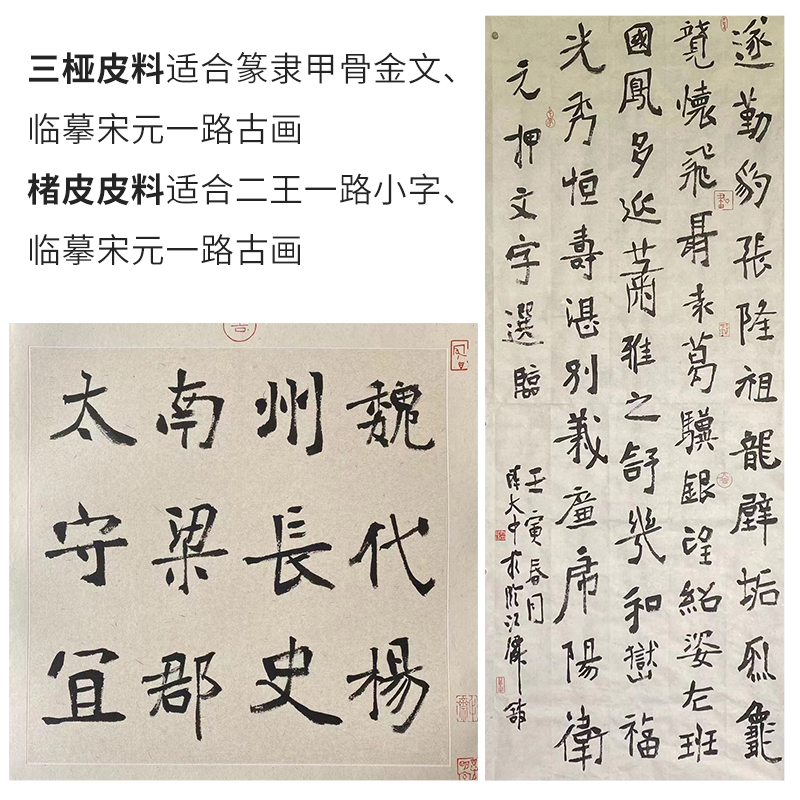 三桠皮料适合篆隶甲骨金文、
临摹宋元一路古画
楮皮皮料适合二王一路小字、
临摹宋元一路古画
魏代楊
州長史
南梁郡
太守宜
遂勤豹張隆祖龍壁垢龕
懷飛袁葛驥銀望紹姿左班
國鳳多延蕭雅之舒幾和嶽福
光秀恒壽湛別義席陽衛
元押文字選臨
壬寅春月
大中於臨江館